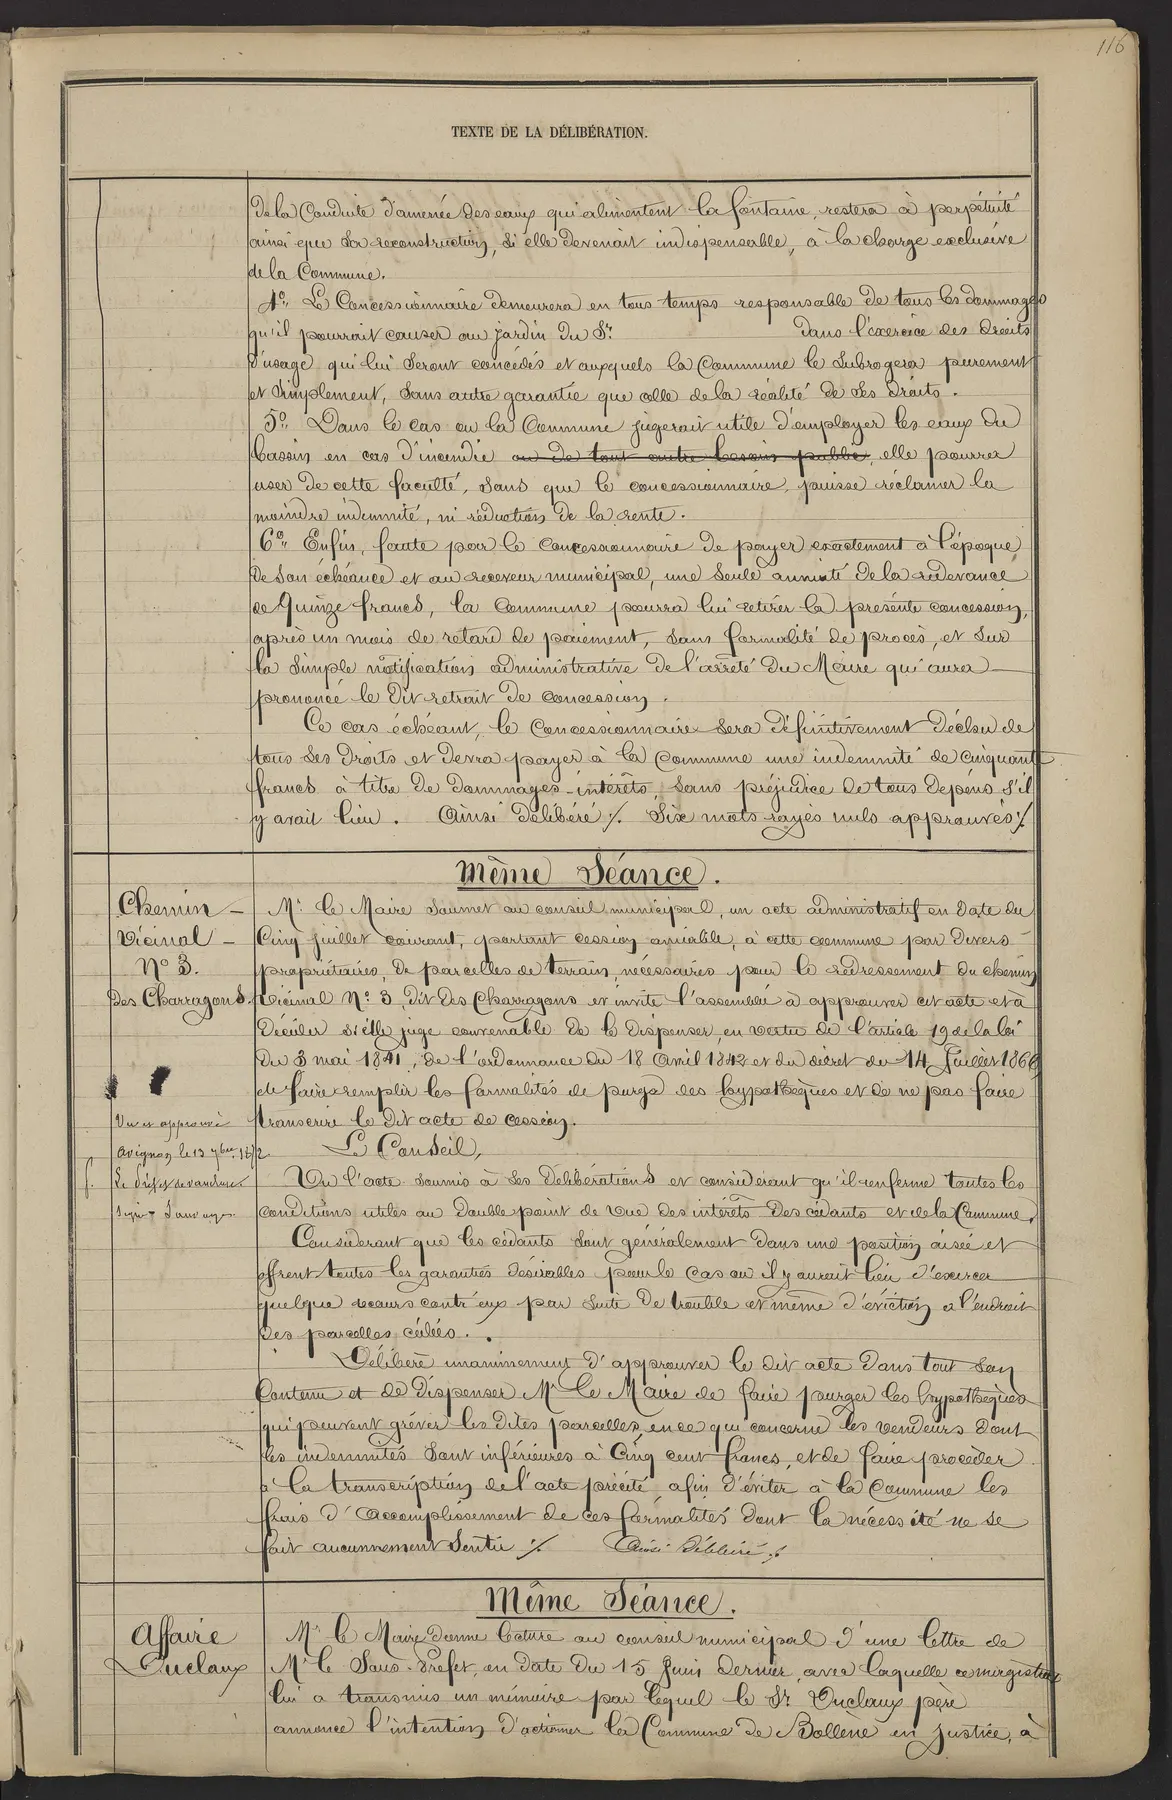 116
TEXTE DE LA DÉLIBÉRATION.
de la Conduite d'amenée des eaux qui alimentent la fontaine, restera à perpétuité
ainsi que sa reconstruction, si elle devenait indispensable, à la charge exclusive
de la Commune.
4° Le Concessionnaire demeurera en tous temps responsable de tous les dommages
qu'il pourrait causer au jardin du Sr. dans l'exercice des droits
d'usage qui lui seront concédés et auxquels la Commune le subrogera purement
et simplement, sans autre garantie que celle de la réalité de ses droits.
5° Dans le cas ou la Commune jugerait utile d'employer les eaux du
bassin en cas d'incendie ou de tout autre besoin public, elle pourra
user de cette faculté, sans que le concessionnaire, puisse réclamer la
moindre indemnité, ni réduction de la rente.
6° Enfin, faute par le Concessionnaire de payer exactement à l'époque,
de son échéance et au receveur municipal, une seule annuité de la redevance
de Quinze francs, la Commune pourra lui retirer la présente concession,
après un mois de retard de paiement, sans formalité de procès, et sur
la simple notification administrative de l'arrêté du Maire qui aura
prononcé le dit retrait de concession.
Ce cas échéant, le Concessionnaire sera définitivement déchu de
tous ses droits et devra payer à la Commune une indemnité de cinquante
francs à titre de dommages-intérêts, sans préjudice de tous dépens s'il
y avait lieu. Ainsi délibéré ./. Six mots rayés nuls approuvés ./.
Même Séance.
Chemin –
Vicinal –
N° 3.
des Charragons.
Mr. le Maire soumet au conseil municipal, un acte administratif en date du
Cinq juillet courant, portant cession amiable, à cette commune par divers
propriétaires, de parcelles de terrain, nécessaires pour le redressement du chemin
Vicinal N° 3, dit des Charragons et invite l'assemblée à approuver cet acte et à
décider si elle juge convenable de le dispenser, en vertu de l'article 19 de la loi
du 3 mai 1841, de l'ordonnance du 18 Avril 1842 et du décret du 14 Juillet 1866
de faire remplir les formalités de purge des hypothèques et de ne pas faire
transcrire le dit acte de cession.
Vu et approuvé
Avignon le 13 7bre 1872
Le Préfet de vaucluse
Le Conseil,
Vu l'acte soumis à ses délibérations et considérant qu'il renferme toutes les
conditions utiles au double point de vue des intérêts des cédants et de la Commune,
Considérant que les cédants sont généralement dans une position aisée et
offrent toutes les garanties désirables pour le cas ou il y aurait lieu d'exercer
quelque recours contr'eux par suite de trouble et même d'éviction à l'endroit
des parcelles cédées.
Délibère unanimement d'approuver le dit acte dans tout son
Contenu et de dispenser Mr le Maire de faire purger les hypothèques
qui peuvent gréver les dites parcelles, en ce qui concerne les vendeurs dont
les indemnités sont inférieures à Cinq cent francs, et de faire procéder
à la transcription de l'acte précité afin d'éviter à la Commune les
frais d'accomplissement de ces formalités dont la nécessité ne se
fait aucunnement sentir ./. Ainsi délibéré ./.
Même Séance.
Affaire
Duclaux
Mr le Maire donne lecture au conseil municipal d'une lettre de
Mr le Sous-Préfet, en date du 15 juin dernier, avec laquelle ce magistrat
lui a transmis un mémoire par lequel le Sr Duclaux père
annonce l'intention d'actionner la Commune de Bollène en justice, à